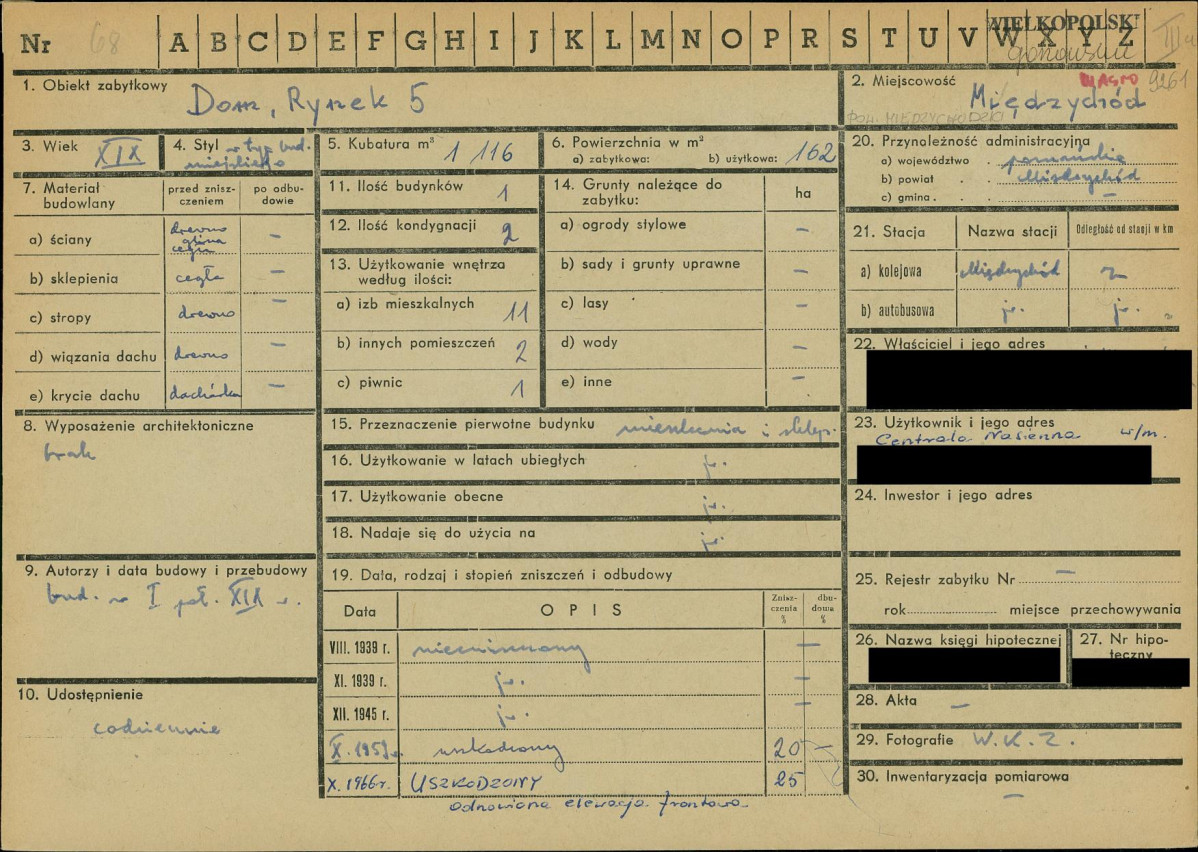 Nr 68 A B C D E F G H I J K L M N O P R S T U V W X Y Z
WIELKOPOLSKI
gorzowskie
1. Obiekt zabytkowy Dom, Rynek 5
2. Miejscowość MIASTO 9261
Międzychód
POW. MIĘDZYCHODZKI
3. Wiek XIX
4. Styl w typ. bud. miejskiego
5. Kubatura m³ 1 116
6. Powierzchnia w m²
a) zabytkowa: b) użytkowa: 162
7. Materiał budowlany
przed zniszczeniem
po odbudowie
a) ściany drewno glina cegła —
b) sklepienia cegła —
c) stropy drewno —
d) wiązania dachu drewno —
e) krycie dachu dachówka —
8. Wyposażenie architektoniczne
brak
9. Autorzy i data budowy i przebudowy
bud. w I poł. XIX w.
10. Udostępnienie
codziennie
11. Ilość budynków 1
12. Ilość kondygnacji 2
13. Użytkowanie wnętrza według ilości:
a) izb mieszkalnych 11
b) innych pomieszczeń 2
c) piwnic 1
14. Grunty należące do zabytku: ha
a) ogrody stylowe —
b) sady i grunty uprawne —
c) lasy —
d) wody —
e) inne —
15. Przeznaczenie pierwotne budynku mieszkania i sklep.
16. Użytkowanie w latach ubiegłych jw.
17. Użytkowanie obecne jw.
18. Nadaje się do użycia na jw.
19. Data, rodzaj i stopień zniszczeń i odbudowy
Data OPIS Zniszczenia % dbudowa %
VIII. 1939 r. niezniszczony —
XI. 1939 r. jw. —
XII. 1945 r. jw. —
X. 1959 r. uszkodzony 20 —
X. 1966 r. USZKODZONY 25
odnowiona elewacja frontowa.
20. Przynależność administracyjna
a) województwo poznańskie
b) powiat Międzychód
c) gmina —
21. Stacja Nazwa stacji Odległość od stacji w km
a) kolejowa Międzychód 2
b) autobusowa jw. jw.
22. Właściciel i jego adres
23. Użytkownik i jego adres
Centrala Nasienna w/m.
24. Inwestor i jego adres
25. Rejestr zabytku Nr —
rok miejsce przechowywania
26. Nazwa księgi hipotecznej
27. Nr hipoteczny
28. Akta —
29. Fotografie W.K.Z.
30. Inwentaryzacja pomiarowa
—